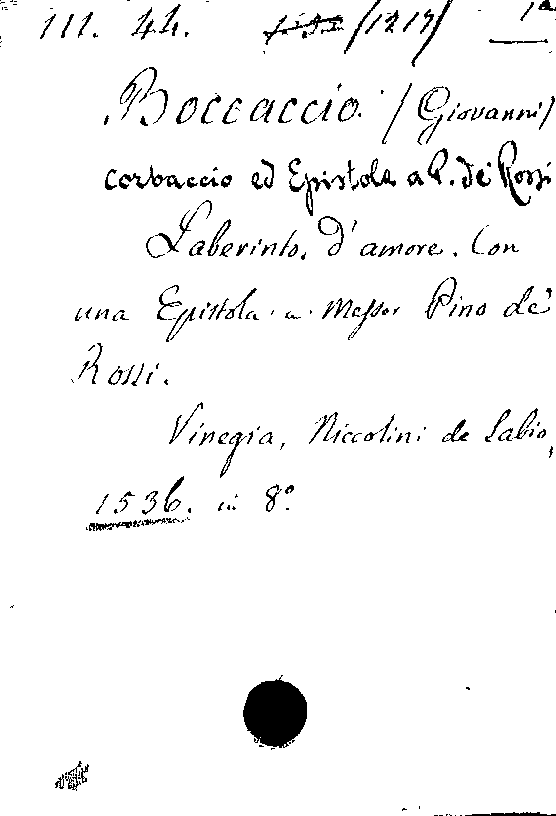 III. 44. /1217/ 1a
Boccaccio. / (Giovanni)
corbaccio ed Epistola a P. de' Rossi
Laberinto, d'amore. Con
una Epistola a Messer Pino de'
Rossi.
Vinegia, Niccolini de Sabio,
1536. in 8º